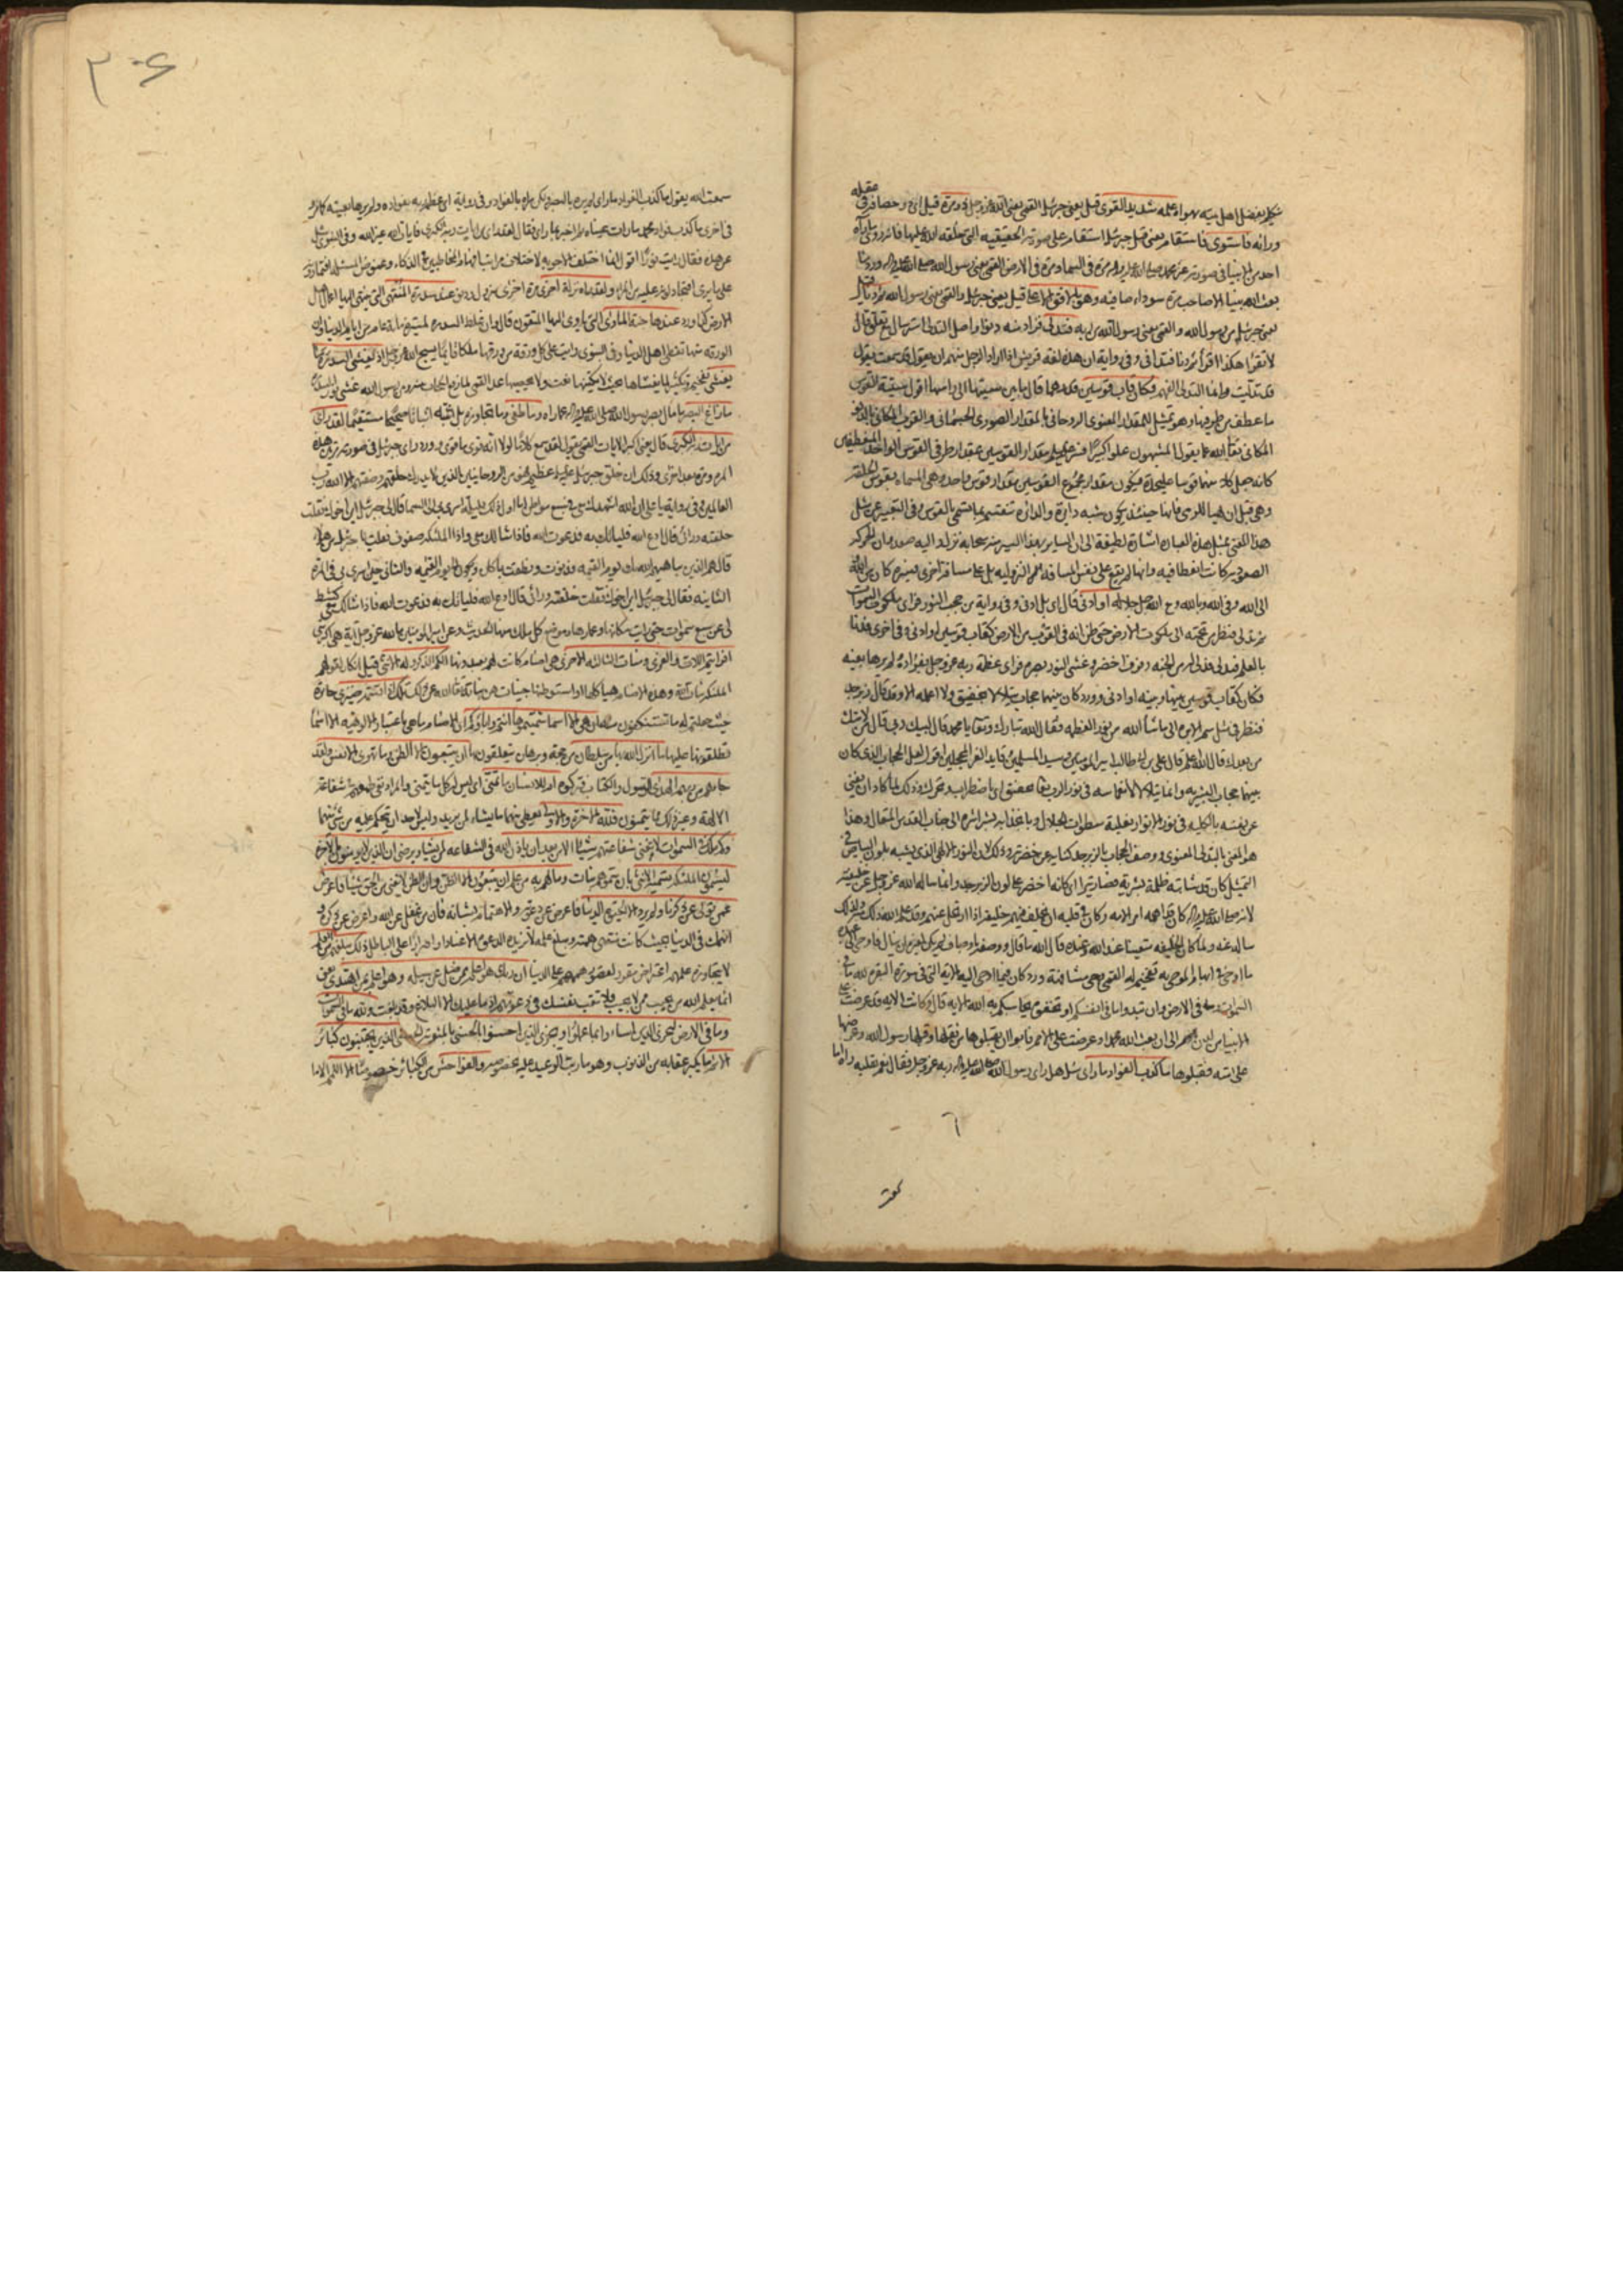 علمه شديد القوى قيل يعني جبرئيل القمي يعني الله عز وجل ذو مرة قيل اي ذو حصافة في عقله
ورأيه فاستوى فاستقام يعني قيل جبرئيل استقام على صورته الحقيقيه التي خلقه الله عليها فانه روي ما رآه
احد من الانبيا في صورته غير محمد صلى الله عليه وآله مرة في السماء ومرة في الارض القمي يعني رسول الله صلى الله عليه وآله
بعث الله نبيا الا صاحب مرة سوداء صافيه وهو بالافق الاعلى قيل يعني جبرئيل والقمي يعني رسول الله ثم دنا قيل
يعني جبرئيل من رسول الله والقمي يعني رسول الله من ربه فتدلى فزاد منه دنوا واصل التدلي استرسال مع تعلق قال
لا تقرا هكذا اقرأ ثم دنا فتدانى وفي رواية ان هذه لغة قريش اذا اراد الرجل منهم ان يقول قد سمعت يقول
قد تدليت وانما التدلي الفهم فكان قاب قوسين قدرهما قال ما بين سيتها الى راسها اقول سية القوس
ما عطف من طرفيها وهو تمثيل للمقدار المعنوي الروحاني بالمقدار الصوري الجسماني والقرب المكاني بالدنو
المكاني تعالى الله عما يقول المشبهون علوا كبيرا فسر عليه السلم مقدار القوسين بمقدار طرفي القوس الواحد المنعطفين
كانه جعل كلا منهما قوسا عليحدة فيكون مقدار مجموع القوسين مقدار قوس واحد وهي المسماة بقوس الحلقة
وهي قبل ان يهيا للرمي فانها حينئذ يكون شبه دايرة والدائرة تنقسم بما يسمى بالقوس وفي التعبير عن مثل
هذا المعنى بمثل هذه العبارة اشارة لطيفة الى ان السائر بهذا السير منه سبحانه نزل واليه صعد وان الحركة
الصعودية كانت انعطافية وانها لم تقع على نفس المسافة النزولية بل على مسافة اخرى فسيره كان من الله
الى الله وفي الله وبالله ومع الله جل جلاله او ادنى قال اي بل ادنى وفي رواية من حجب النور فراى ملكوت السموات
ثم تدلى فنظر من تحته الى ملكوت الارض حتى ظن انه في القرب من الارض كقاب قوسين او ادنى وفي اخرى فدنا
بالعلم فتدلى فدلي له من الجنه رفرف اخضر وغشي النور بصره فراى عظمة ربه عز وجل بفؤاده ولم يرها بعينه
فكان كقاب قوسين بينها وبينه او ادنى وورد كان بينهما حجاب يتلألأ بخفق ولا اعلمه الا وقد قال زبرجد
فنظر في مثل سم الابرة الى ما شاء الله من نور العظمه فقال الله تبارك وتعالى يا محمد قال لبيك ربي قال من لامتك
من بعدك قال الله اعلم قال علي بن ابي طالب امير المؤمنين وسيد المسلمين وقايد الغر المحجلين اقول لعل الحجاب الذي كان
بينهما حجاب البشريه وانما يتلألأ لانغماسه في نور الرب تعالى بخفق اي باضطراب وتحرك وذلك لما كاد ان يفنى
عن نفسه بالكليه في نور الانوار بغلبة سطوات الجلال وبانجذابه بشراشره الى جناب القدس المتعال وهذا
هو المعني بالتدلي المعنوي ووصف الحجاب بالزبرجد كناية عن خضرته وذلك لان النور الالهي الذي يشبه بلون البياض في
التمثيل كان قد شابته ظلمة بشرية فصار يترا اي كانه اخضر على لون الزبرجد وانما ساله الله عز وجل عن خليفته
لانه صلى الله عليه وآله كان قد اهمه امر الامه وكان في قلبه ان يخلف فيهم خليفة اذا ارتحل عنهم وقد علم الله ذلك منه ولذلك
ساله عنه ولما كان الخليفه متعينا عند الله وعنده قال الله ما قال ووصفه باوصاف لم يكن لغيره ان ينال فاوحى الى عبده
ما اوحى في ابهام الموحى به تفخيم له القمي وحي مشافهة وورد كان فيما اوحى اليه الاية التي في سورة البقرة لله ما في
السموات وما في الارض وان تبدوا ما في انفسكم او تخفوه يحاسبكم به الله الاية قال وكانت الاية قد عرضت على
الانبيا من لدن آدم الى ان بعث الله محمدا وعرضت على الامم فابوا ان يقبلوها من ثقلها وقبلها رسول الله وعرضها
على امته فقبلوها ما كذب الفؤاد ما راى سئل هل راى رسول الله صلى الله عليه وآله ربه عز وجل فقال نعم بقلبه رآه اما
سمعت
٣٠٤
سمعت الله يقول ما كذب الفؤاد ما راى لم يره بالبصر ولكن راه بالفؤاد وفي رواية اي عظمة ربه بفؤاده ولم يرها بعينه كما مر
في اخرى ما كذب فؤاد محمد ما رات عيناه ثم اخبر بما راى فقال لقد راى من ايات ربه الكبرى فايات الله غير الله وفي النبوي سئل
عن هذه فقال رايت نورا اقول انما اختلف الاجوبه لاختلاف مراتب افهام المخاطبين في الذكاء وغموض المسئله افتمارونه
على ما يرى افتجادلونه عليه من المراء ولقد راه نزلة اخرى مرة اخرى بنزول ودنو عند سدرة المنتهى التي ينتهي اليها اعمال اهل
الارض كما ورد عندها جنة الماوى التي ياوي اليها المتقون قال وان غلظ السدره لمسيرة مائة عام من ايام الدنيا وان
الورقه منها تغطي اهل الدنيا وفي النبوي رايت على كل ورقة من ورقها ملكا قائما يسبح الله عز وجل اذ يغشى السدرة ما
يغشى تفخيم وتكثير لما يغشاها بحيث لا يكتنهها نعت ولا يحصيها عد القمي لما رفع الحجاب بينه وبين رسول الله غشي نوره السدرة
ما زاغ البصر ما مال بصر رسول الله صلى الله عليه وآله عما راه وما طغى وما تجاوزه بل اثبته اثباتا صحيحا مستقيما لقد راى
من ايات ربه الكبرى قال يعني اكبر الايات القمي يقول لقد سمع كلاما لولا انه قوي ما قوي وورد راى جبرئيل في صورته مرتين هذه
المرة ومرة بعد اخرى وذلك ان خلق جبرئيل عليه السلام عظيم فهو من الروحانيين الذين لا يدرك خلقهم وصفتهم الا الله رب
العالمين وفي رواية يا علي ان الله اشهدك معي في سبع مواطن اما اول ذلك فليلة اسري بي الى السماء قال لي جبرئيل اين اخوك فقلت
خلفته ورائي قال ادع الله فلياتك به فدعوت الله فاذا مثالك معي واذا الملئكة صفوف فقلت يا جبرئيل من هؤلاء
قال هم الذين يباهيهم الله بك يوم القيمه فدنوت ونطقت بما كان ويكون الى يوم القيمه والثاني حين اسري بي في المرة
الثانيه فقال لي جبرئيل اين اخوك فقلت خلفته ورائي قال ادع الله فلياتك به فدعوت الله فاذا مثالك معي فكشط
لي عن سبع سموات حتى رايت سكانها وعمارها وموضع كل ملك منها الحديث وعن امير المؤمنين ما لله عز وجل آية هي اكبر مني
افرايتم اللات والعزى ومنات الثالثه الاخرى هي اصنام كانت لهم يعبدونها الكم الذكر وله الانثى قيل انكار لقولهم
الملئكة بنات الله وهذه الاصنام هياكلها او استوطنها جنيات هن بناته تعالى الله عن ذلك تلك اذا قسمة ضيزى جائرة
حيث جعلتم له ما تستنكفون منه ان هي الا اسماء سميتموها انتم واباؤكم اي الاصنام ما هي باعتبار الالوهيه الا اسماء
تطلقونها عليها ما انزل الله بها من سلطان من حجة وبرهان يتعلقون بها ان يتبعون الا الظن وما تهوى الانفس ولقد
جاءهم من ربهم الهدى الرسول والكتاب فتركوه ام للانسان ما تمنى اي ليس له كل ما يتمنى والمراد نفي طمعهم في شفاعة
الالهة وغير ذلك مما يتمنون فلله الاخرة والاولى يعطي منهما ما يشاء لمن يريد وليس لاحد ان يتحكم عليه في شيء منهما
وكم من ملك في السموات لا تغني شفاعتهم شيئا الا من بعد ان ياذن الله في الشفاعه لمن يشاء ويرضى ان الذين لا يؤمنون بالاخرة
ليسمون الملئكة تسمية الانثى بان سموهم بنات وما لهم به من علم ان يتبعون الا الظن وان الظن لا يغني من الحق شيئا فاعرض
عمن تولى عن ذكرنا ولم يرد الا الحيوة الدنيا فاعرض عن دعوته والاهتمام بشانه فان من غفل عن الله واعرض عن ذكره و
انهمك في الدنيا بحيث كانت منتهى همته ومبلغ علمه لا تزيده الدعوة الا عنادا واصرارا على الباطل ذلك مبلغهم من العلم
لا يتجاوزه علمهم اعتراض مقرر لقصور هممهم على الدنيا ان ربك هو اعلم بمن ضل عن سبيله وهو اعلم بمن اهتدى يعني
انما يعلم الله من يجيب ممن لا يجيب فلا تتعب نفسك في دعوتهم اذ ما عليك الا البلاغ وقد بلغت ولله ما في السموات
وما في الارض ليجزي الذين اساءوا بما عملوا ويجزي الذين احسنوا بالحسنى بالمثوبة الحسنى الذين يجتنبون كبائر
الاثم ما يكبر عقابه من الذنوب وهو ما رتب الوعيد عليه بخصوصه والفواحش من الكبائر خصوصا الا اللمم الا ما